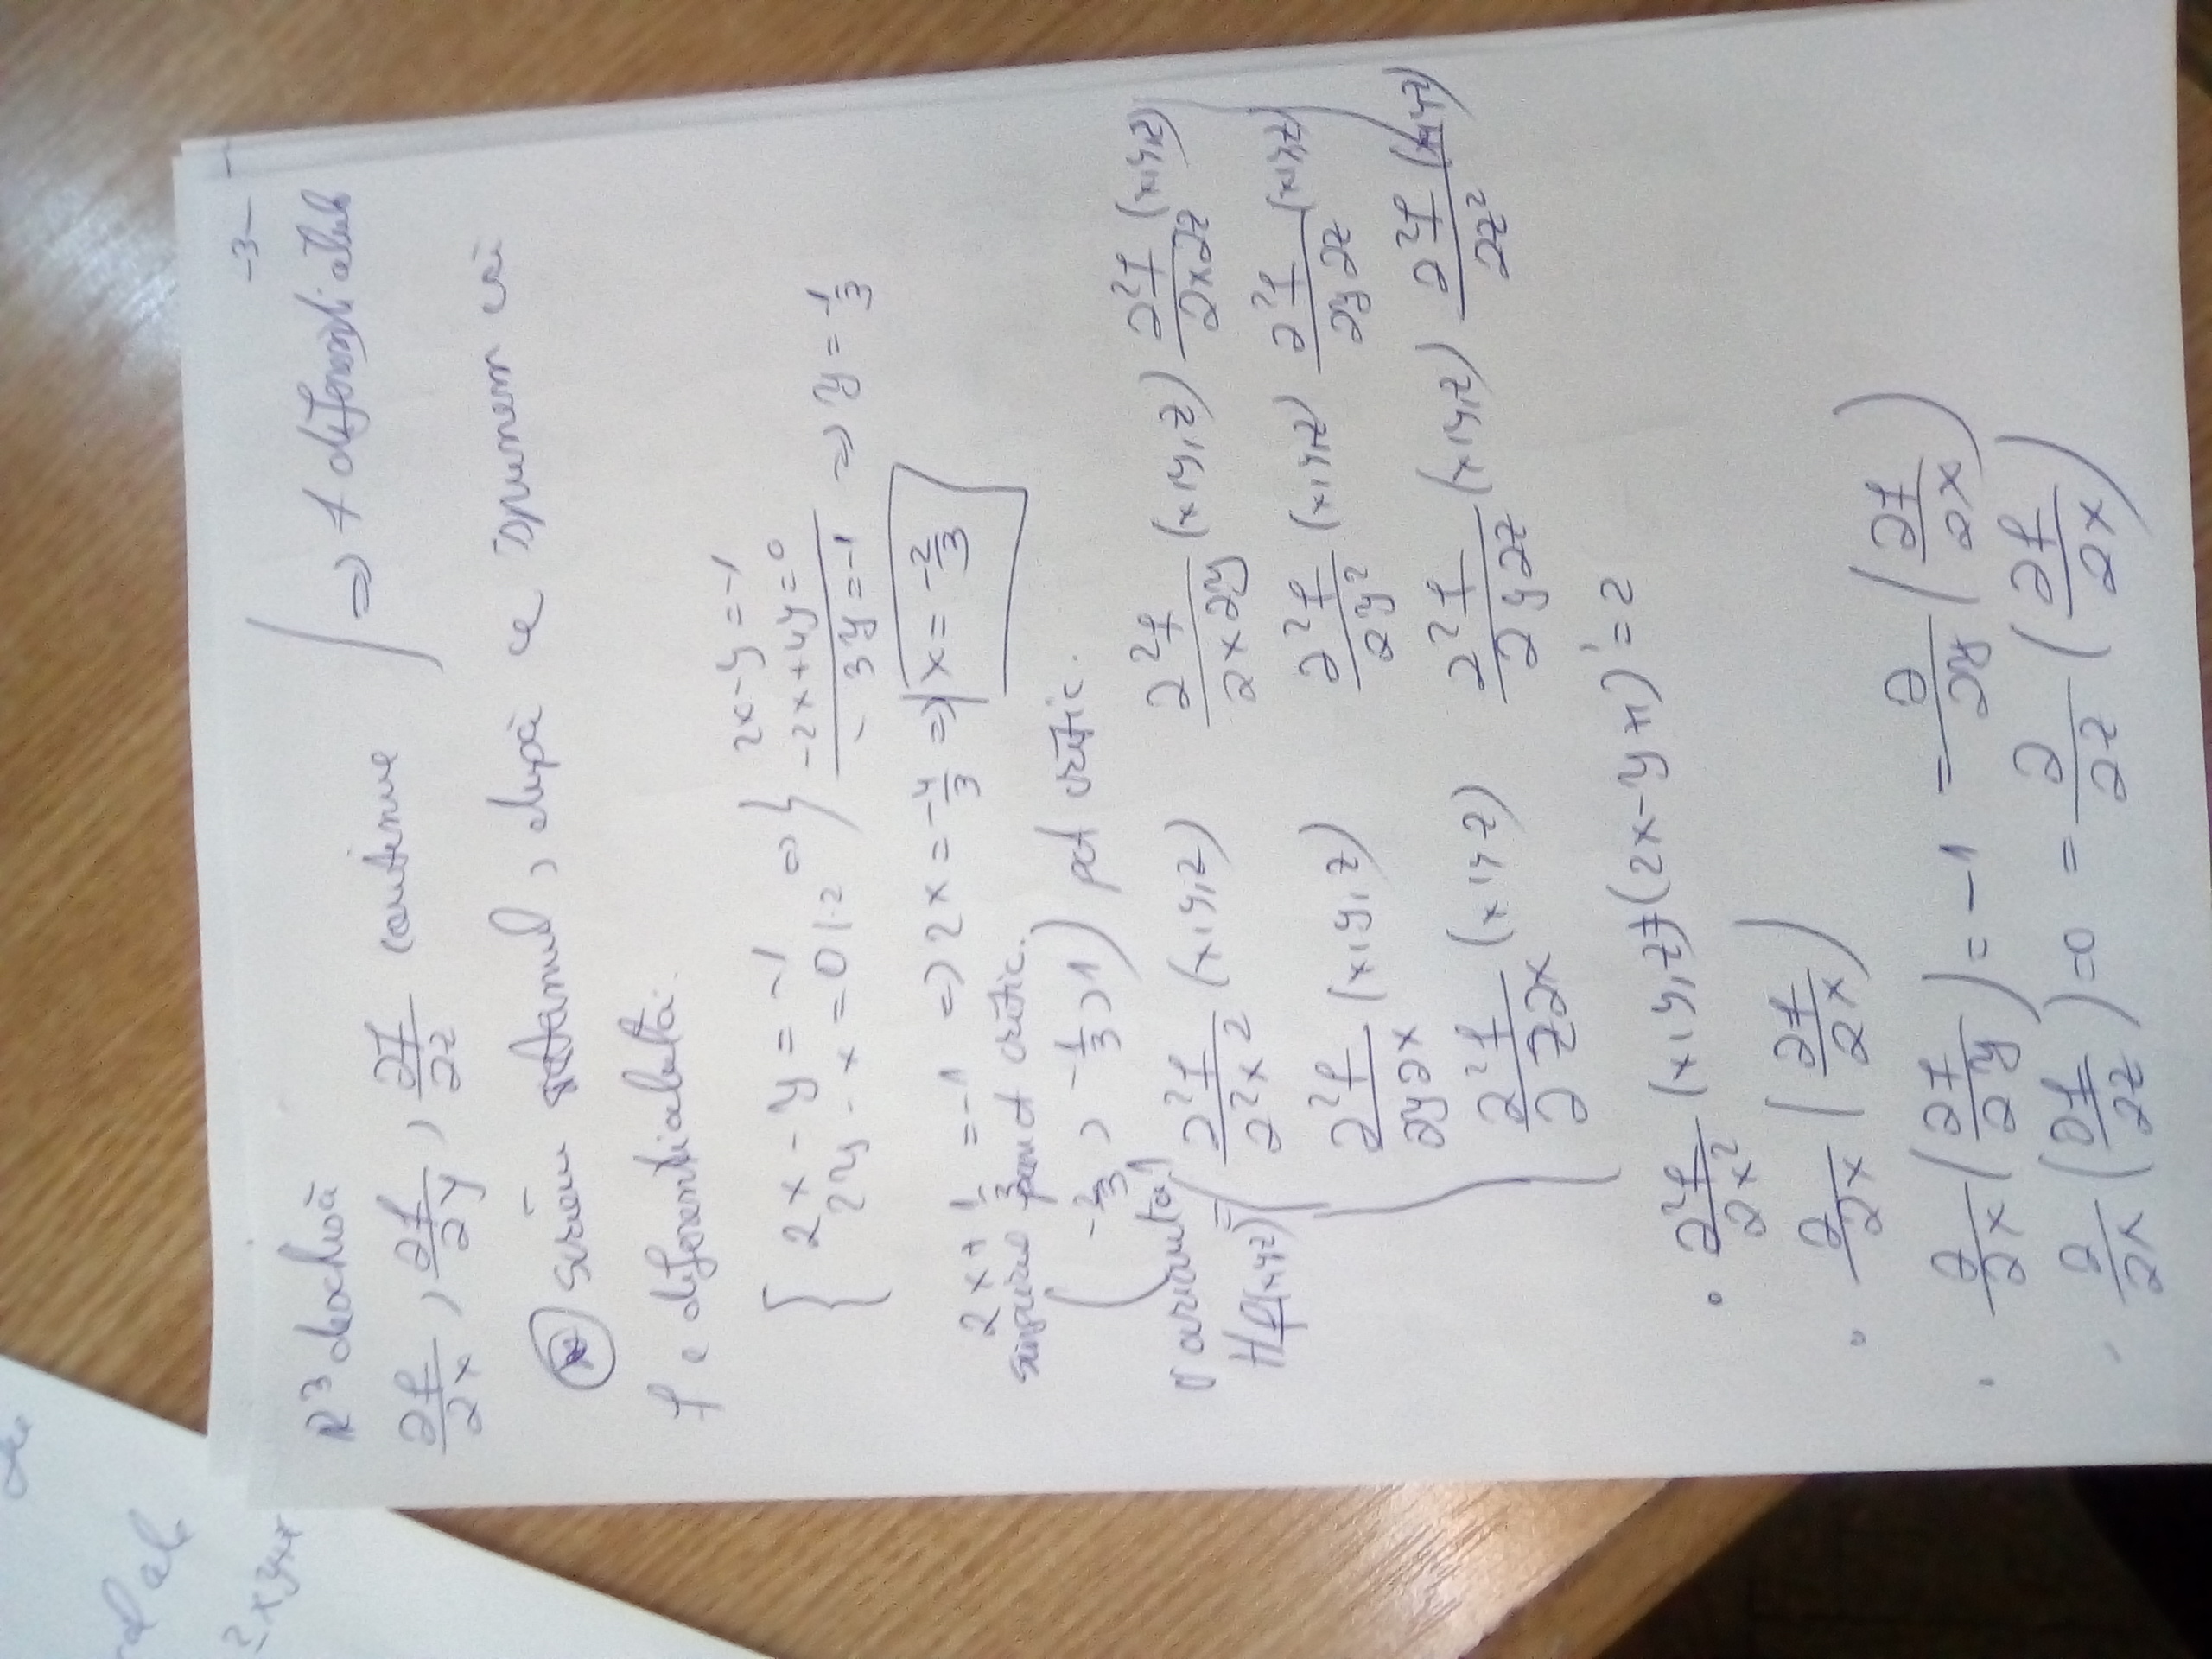 -3-
R³ deschisă
∂f/∂x, ∂f/∂y, ∂f/∂z continue } => f diferențiabilă
(*) Scriem, după ce spunem că
f e diferențiabilă.
{ 2x - y = -1
2y - x = 0 |·2 => } 2x-y=-1
-2x+4y=0
3y=-1 => y = -1/3
2x + 1/3 = -1 => 2x = -4/3 => x = -2/3
singurul punct critic.
(-2/3, -1/3, 1) pct critic.
O varianta!
Hf(x,y,z) = ( ∂²f/∂²x2 (x,y,z) ∂²f/∂x∂y (x,y,z) ∂²f/∂x∂z (x,y,z)
∂²f/∂y∂x (x,y,z) ∂²f/∂y² (x,y,z) ∂²f/∂y∂z (x,y,z)
∂²f/∂z∂x (x,y,z) ∂²f/∂y∂z (x,y,z) ∂²f/∂z² (x,y,z) )
• ∂²f/∂x² (x,y,z) = (2x-y+1)' = 2
• ∂/∂x (∂f/∂x)
• ∂/∂x (∂f/∂y) = -1 = ∂/∂y (∂f/∂x)
• ∂/∂x (∂f/∂z) = 0 = ∂/∂z (∂f/∂x)